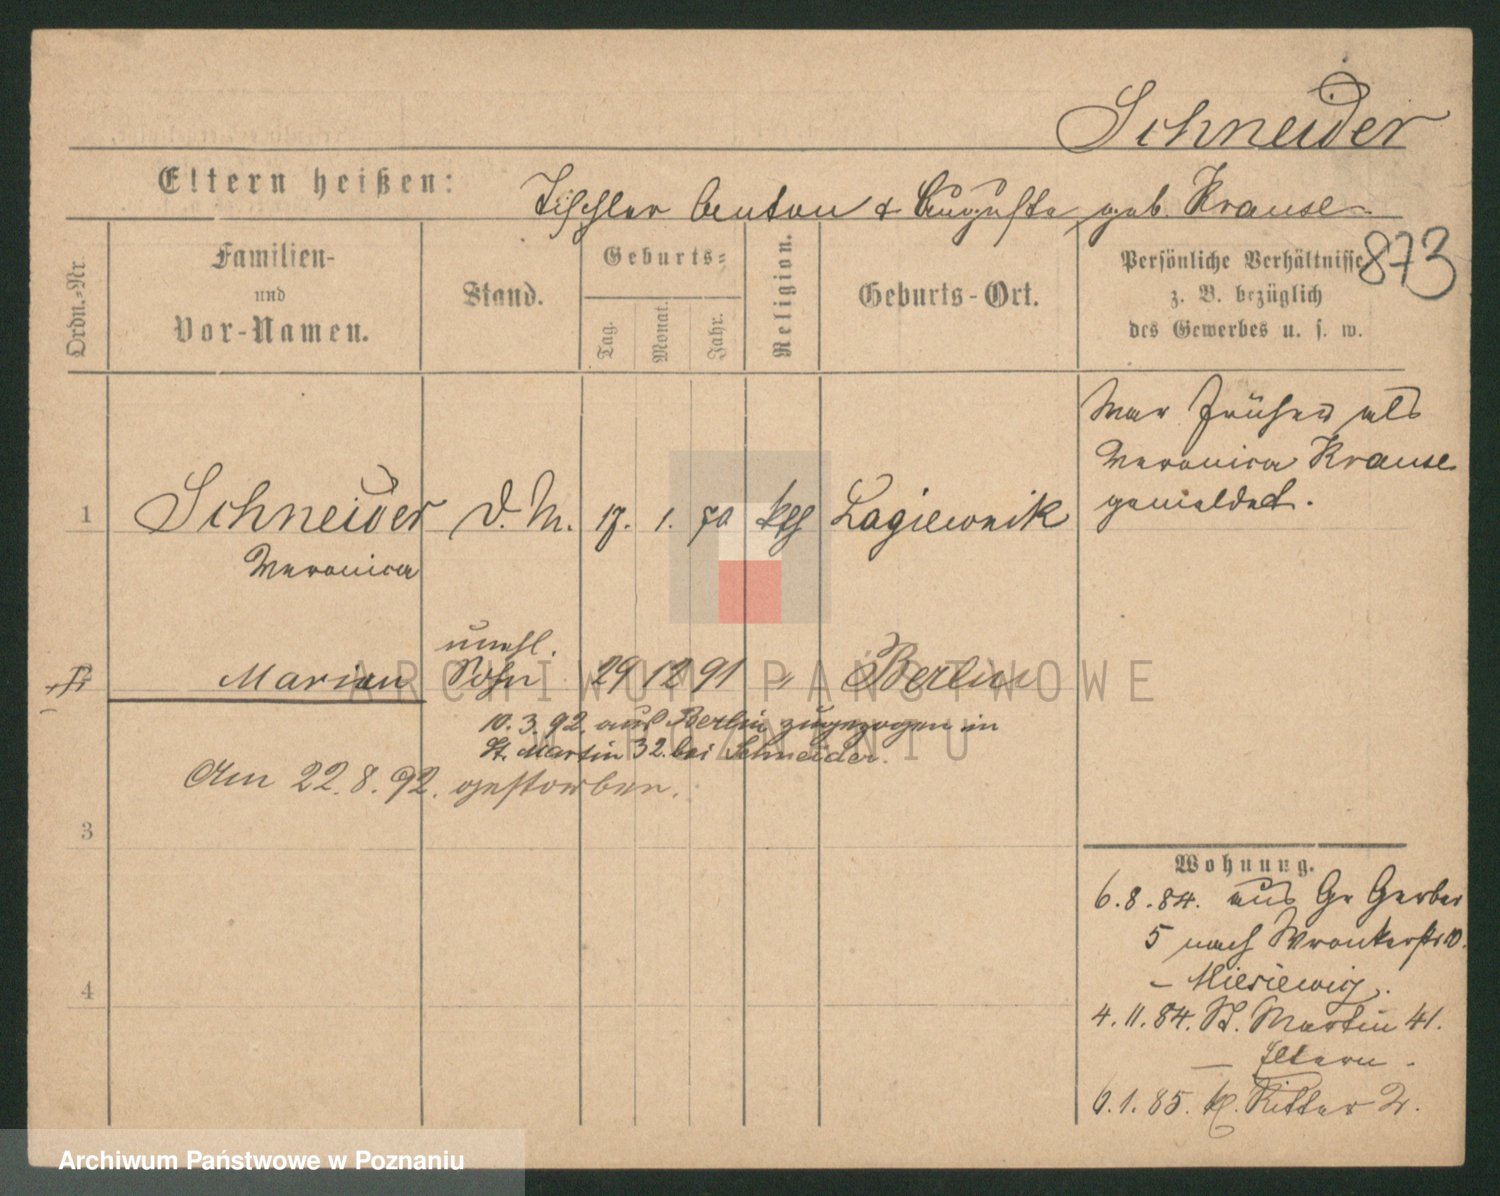 Schneider
Eltern heißen: Tischler Anton & Auguste geb. Krause
873
Ordn.=Nr.
Familien-
und
Vor-Namen.
Stand.
Geburts=
Tag.
Monat.
Jahr.
Religion.
Geburts-Ort.
Persönliche Verhältnisse
z. B. bezüglich
des Gewerbes u. s. w.
War früher als
Veronica Krause
gemeldet.
1 Schneider D. M. 17. 1. 70 kth Lagiewnik
Veronica
unehl.
Marian Sohn 29 12 91 " Berlin
10. 3. 92. aus Berlin zugezogen in
St. Martin 32. bei Schneider.
Am 22. 8. 92. gestorben.
3
4
Wohnung.
6. 8. 84. aus Gr Gerber
5 nach Wronkerstr 10.
4. 11. 84. St. Martin 41.
— Eltern.
6. 1. 85. kl. Ritter 2.
ARCHIWUM PAŃSTWOWE
W POZNANIU
Archiwum Państwowe w Poznaniu